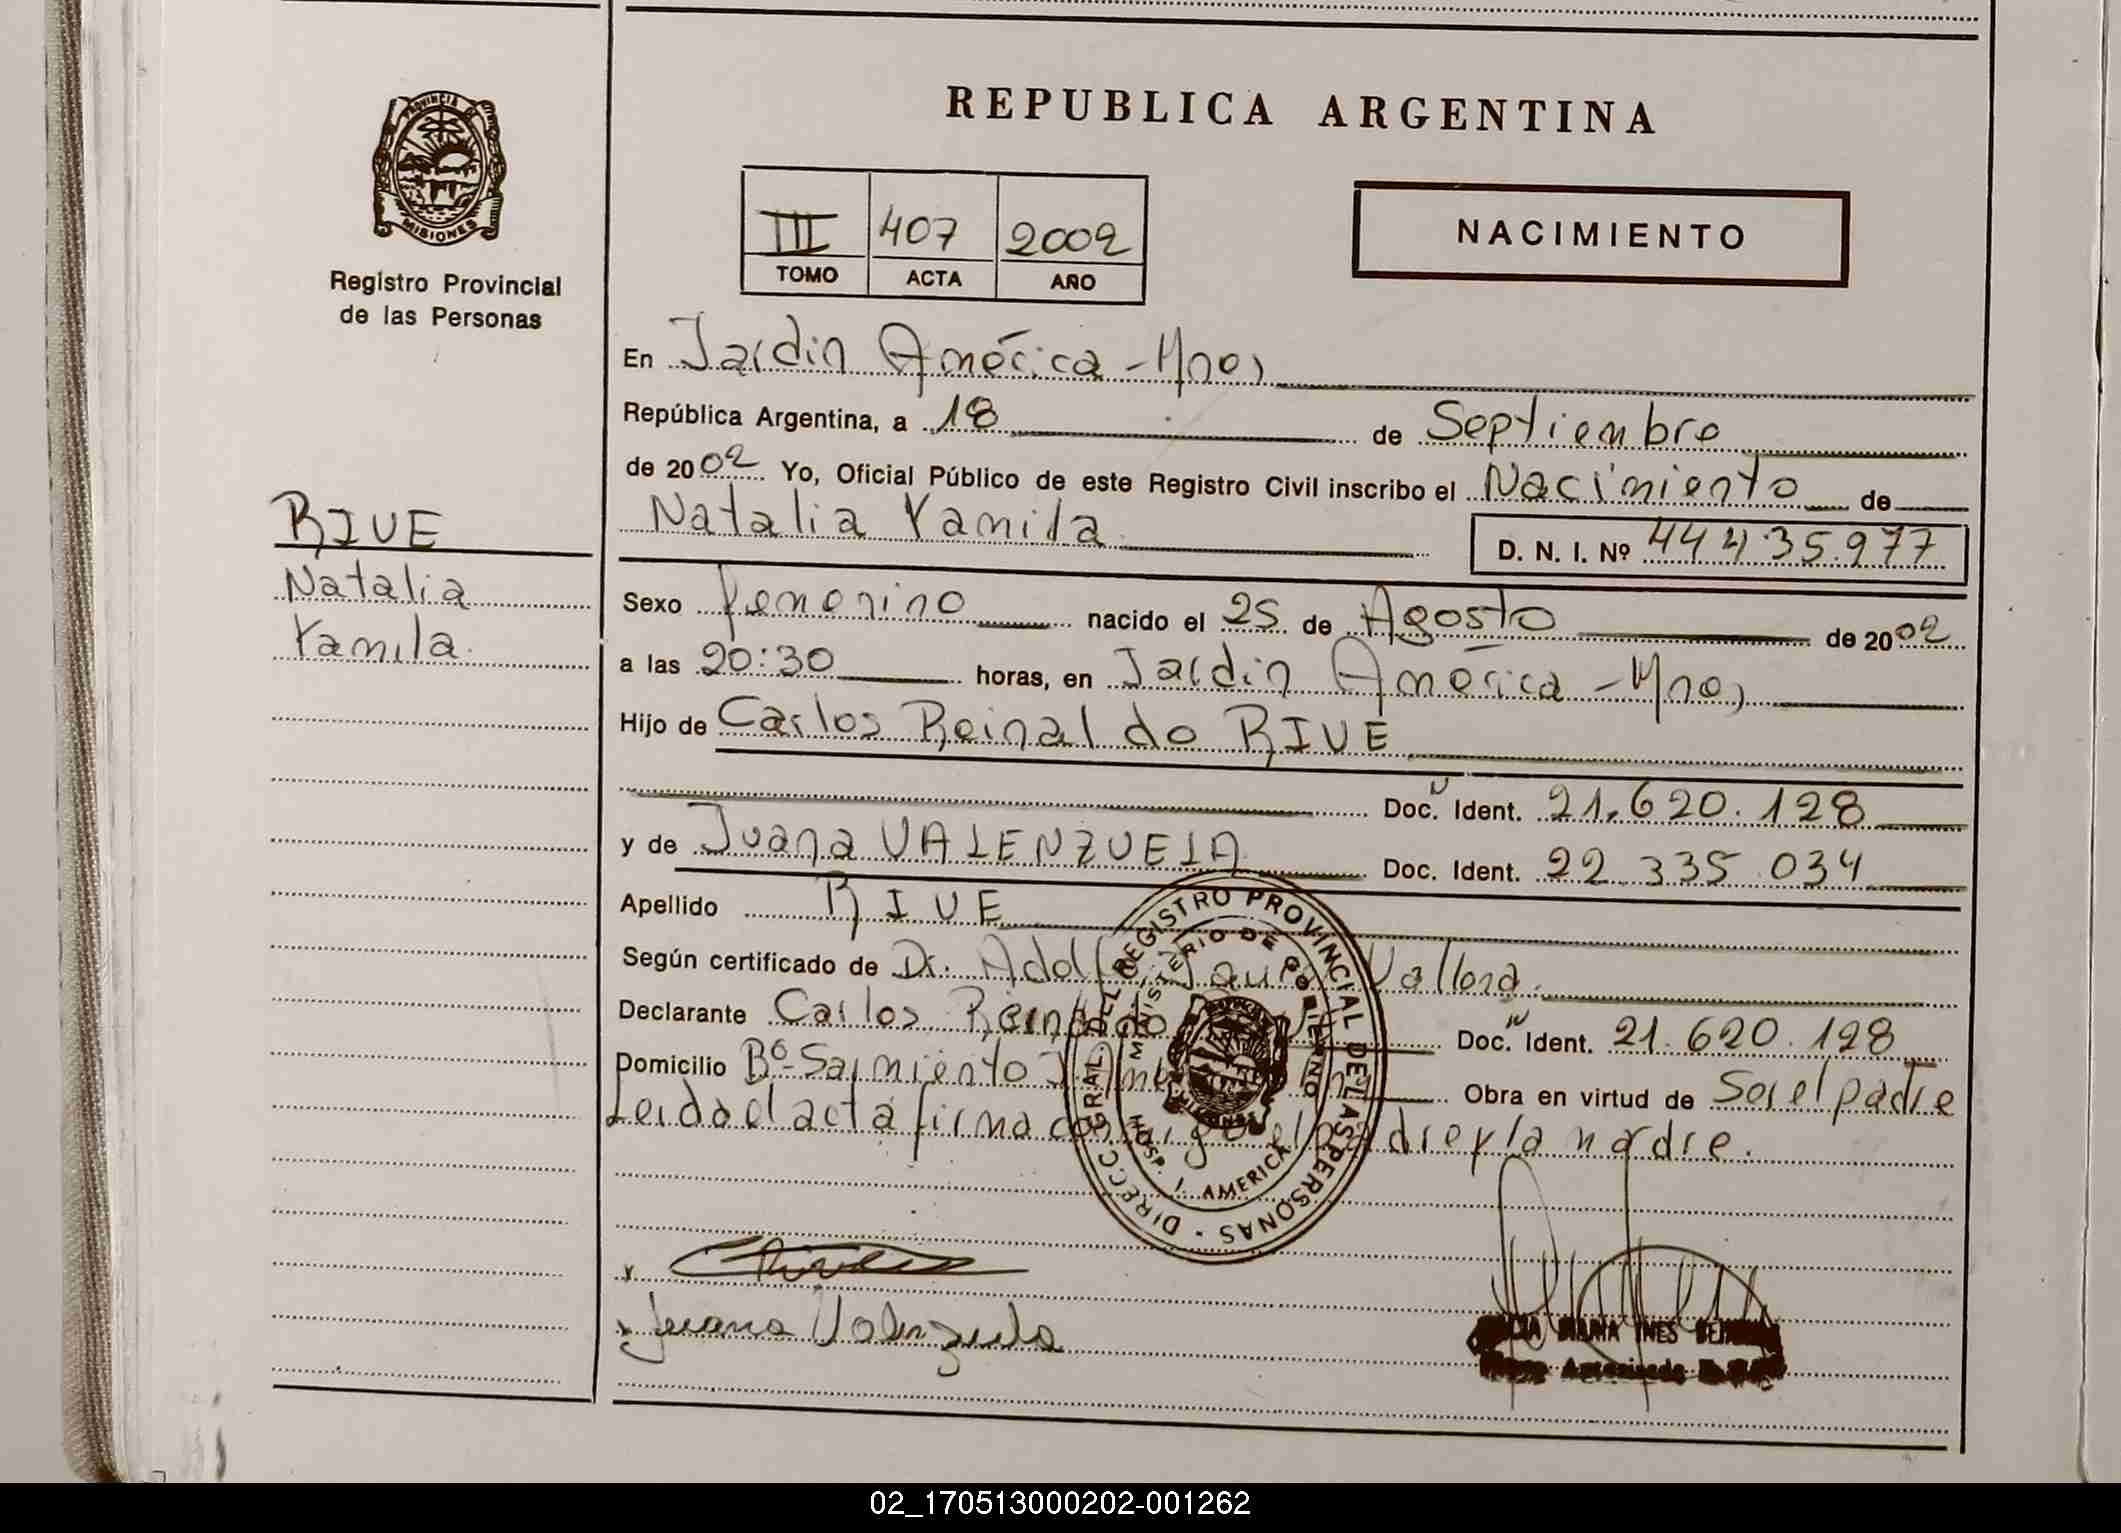 REPUBLICA ARGENTINA
PROVINCIA
MISIONES
Registro Provincial
de las Personas
III 407 2002
TOMO ACTA AÑO
NACIMIENTO
En Jardin América - Mnes
República Argentina, a 18 de Septiembre
de 2002 Yo, Oficial Público de este Registro Civil inscribo el Nacimiento de
Natalia Yamila D. N. I. Nº 44435.977
RIVE
Natalia
Yamila.
Sexo femenino nacido el 25 de Agosto de 2002
a las 20:30 horas, en Jardin América - Mnes
Hijo de Carlos Reinaldo RIVE
Doc. Ident. 21.620.128
y de Juana VALENZUELA Doc. Ident. 22.335.034
Apellido RIVE
Según certificado de Dr. Adolfo Vallora.
Declarante Carlos Reinaldo Doc. Ident. 21.620.128
Domicilio Bº Sarmiento Obra en virtud de Ser el padre
Leida el acta firma conmigo el padre y la madre.
DIRECC. GRAL. DEL REGISTRO PROVINCIAL DE LAS PERSONAS -
MINISTERIO DE GOBIERNO
HOSP. J. AMERICA
Juana Valenzuela
MARIA INES
02_170513000202-001262